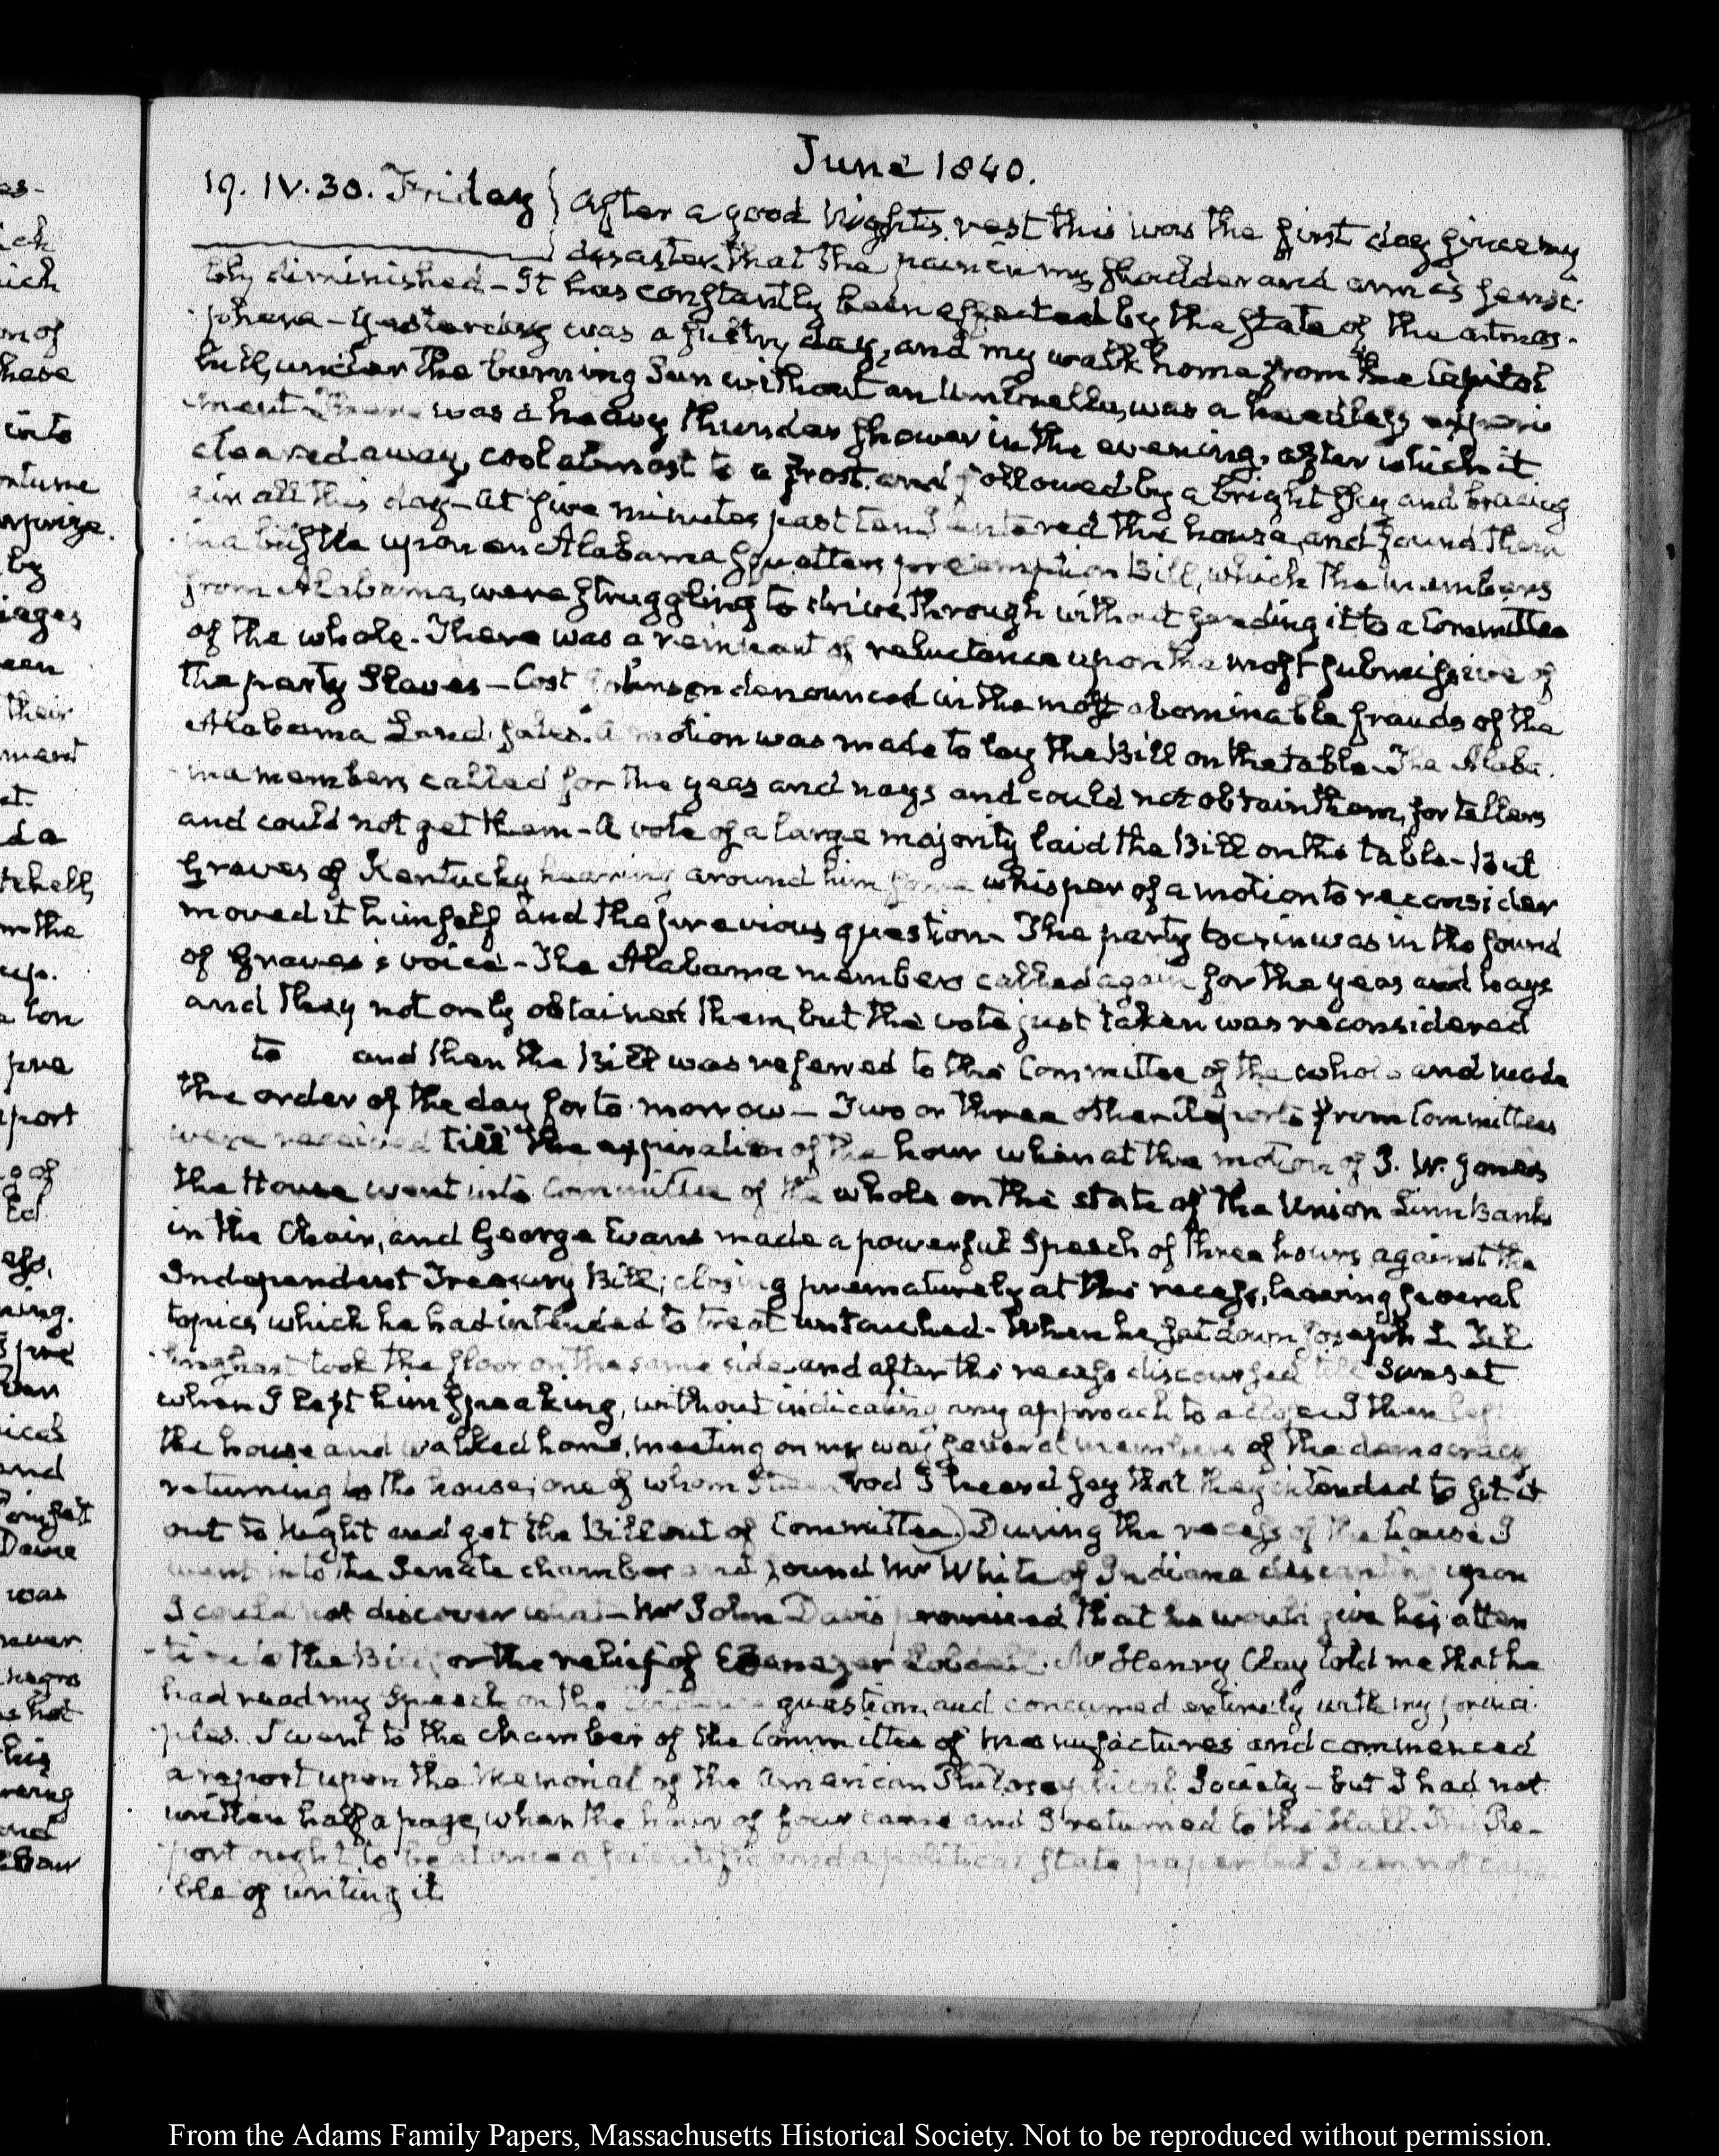 June 1840.
19. IV. 30. Friday } After a good Night's rest this was the first day since my
disaster, that the pain in my shoulder and arm is sensi-
bly diminished - It has constantly been affected by the state of the atmos-
phere - Yesterday was a sultry day, and my walk home from the Capitol
hill, under the burning Sun without an Umbrella, was a heedless experi
ment - There was a heavy thunder shower in the evening, after which it
cleared away, cool almost to a frost, and followed by a bright sky and bracing
air all this day - At five minutes past ten I entered the house, and found them
in a bustle upon an Alabama squatters preemption Bill, which the members
from Alabama, were struggling to drive through without sending it to a Committee
of the whole. There was a remnant of reluctance upon the most submissive of
the party Slaves - Cost Johnson denounced in the most abominable frauds of the
Alabama Land sales. A motion was made to lay the Bill on the table. The Alaba-
ma members called for the yeas and nays and could not obtain them, for tellers
and could not get them - A vote of a large majority laid the Bill on the table - But
Graves of Kentucky hearing around him some whisper of a motion to reconsider
moved it himself and the previous question - The party tocsin was in the sound
of Graves's voice - The Alabama members called again for the yeas and nays
and they not only obtained them, but the vote just taken was reconsidered
to and then the Bill was referred to the Committee of the whole and made
the order of the day for to-morrow - Two or three other Reports from Committees
were received till the expiration of the hour when at the motion of J. W. Jones
the House went into Committee of the whole on the state of the Union Linn Banks
in the Chair, and George Evans made a powerful Speech of three hours against the
Independent Treasury Bill; closing prematurely at the recess, leaving several
topics which he had intended to treat untouched - When he sat down Joseph L. Til
linghast took the floor on the same side and after the recess discoursed till Sunset
when I left him speaking, without indicating any approach to a close I then left
the house and walked home, meeting on my way several members of the democracy
returning to the house; one of whom Steenrod I heard say that they intended to sit it
out to Night and get the Bill out of Committee.) During the recess of the house I
went into the Senate chamber and found Mr White of Indiana descanting upon
I could not discover what - Mr John Davis promised that he would give his atten
tion to the Bill for the relief of Ebenezer Lobdell. Mr Henry Clay told me that he
had read my Speech on the question, and concurred entirely with my princi-
ples. I went to the chamber of the Committee of Manufactures and commenced
a report upon the Memorial of the American Philosophical Society - but I had not
written half a page, when the hour of four came and I returned to the Hall. This Re-
port ought to be at once a scientific and a political State paper but I am not capa
ble of writing it
From the Adams Family Papers, Massachusetts Historical Society. Not to be reproduced without permission.